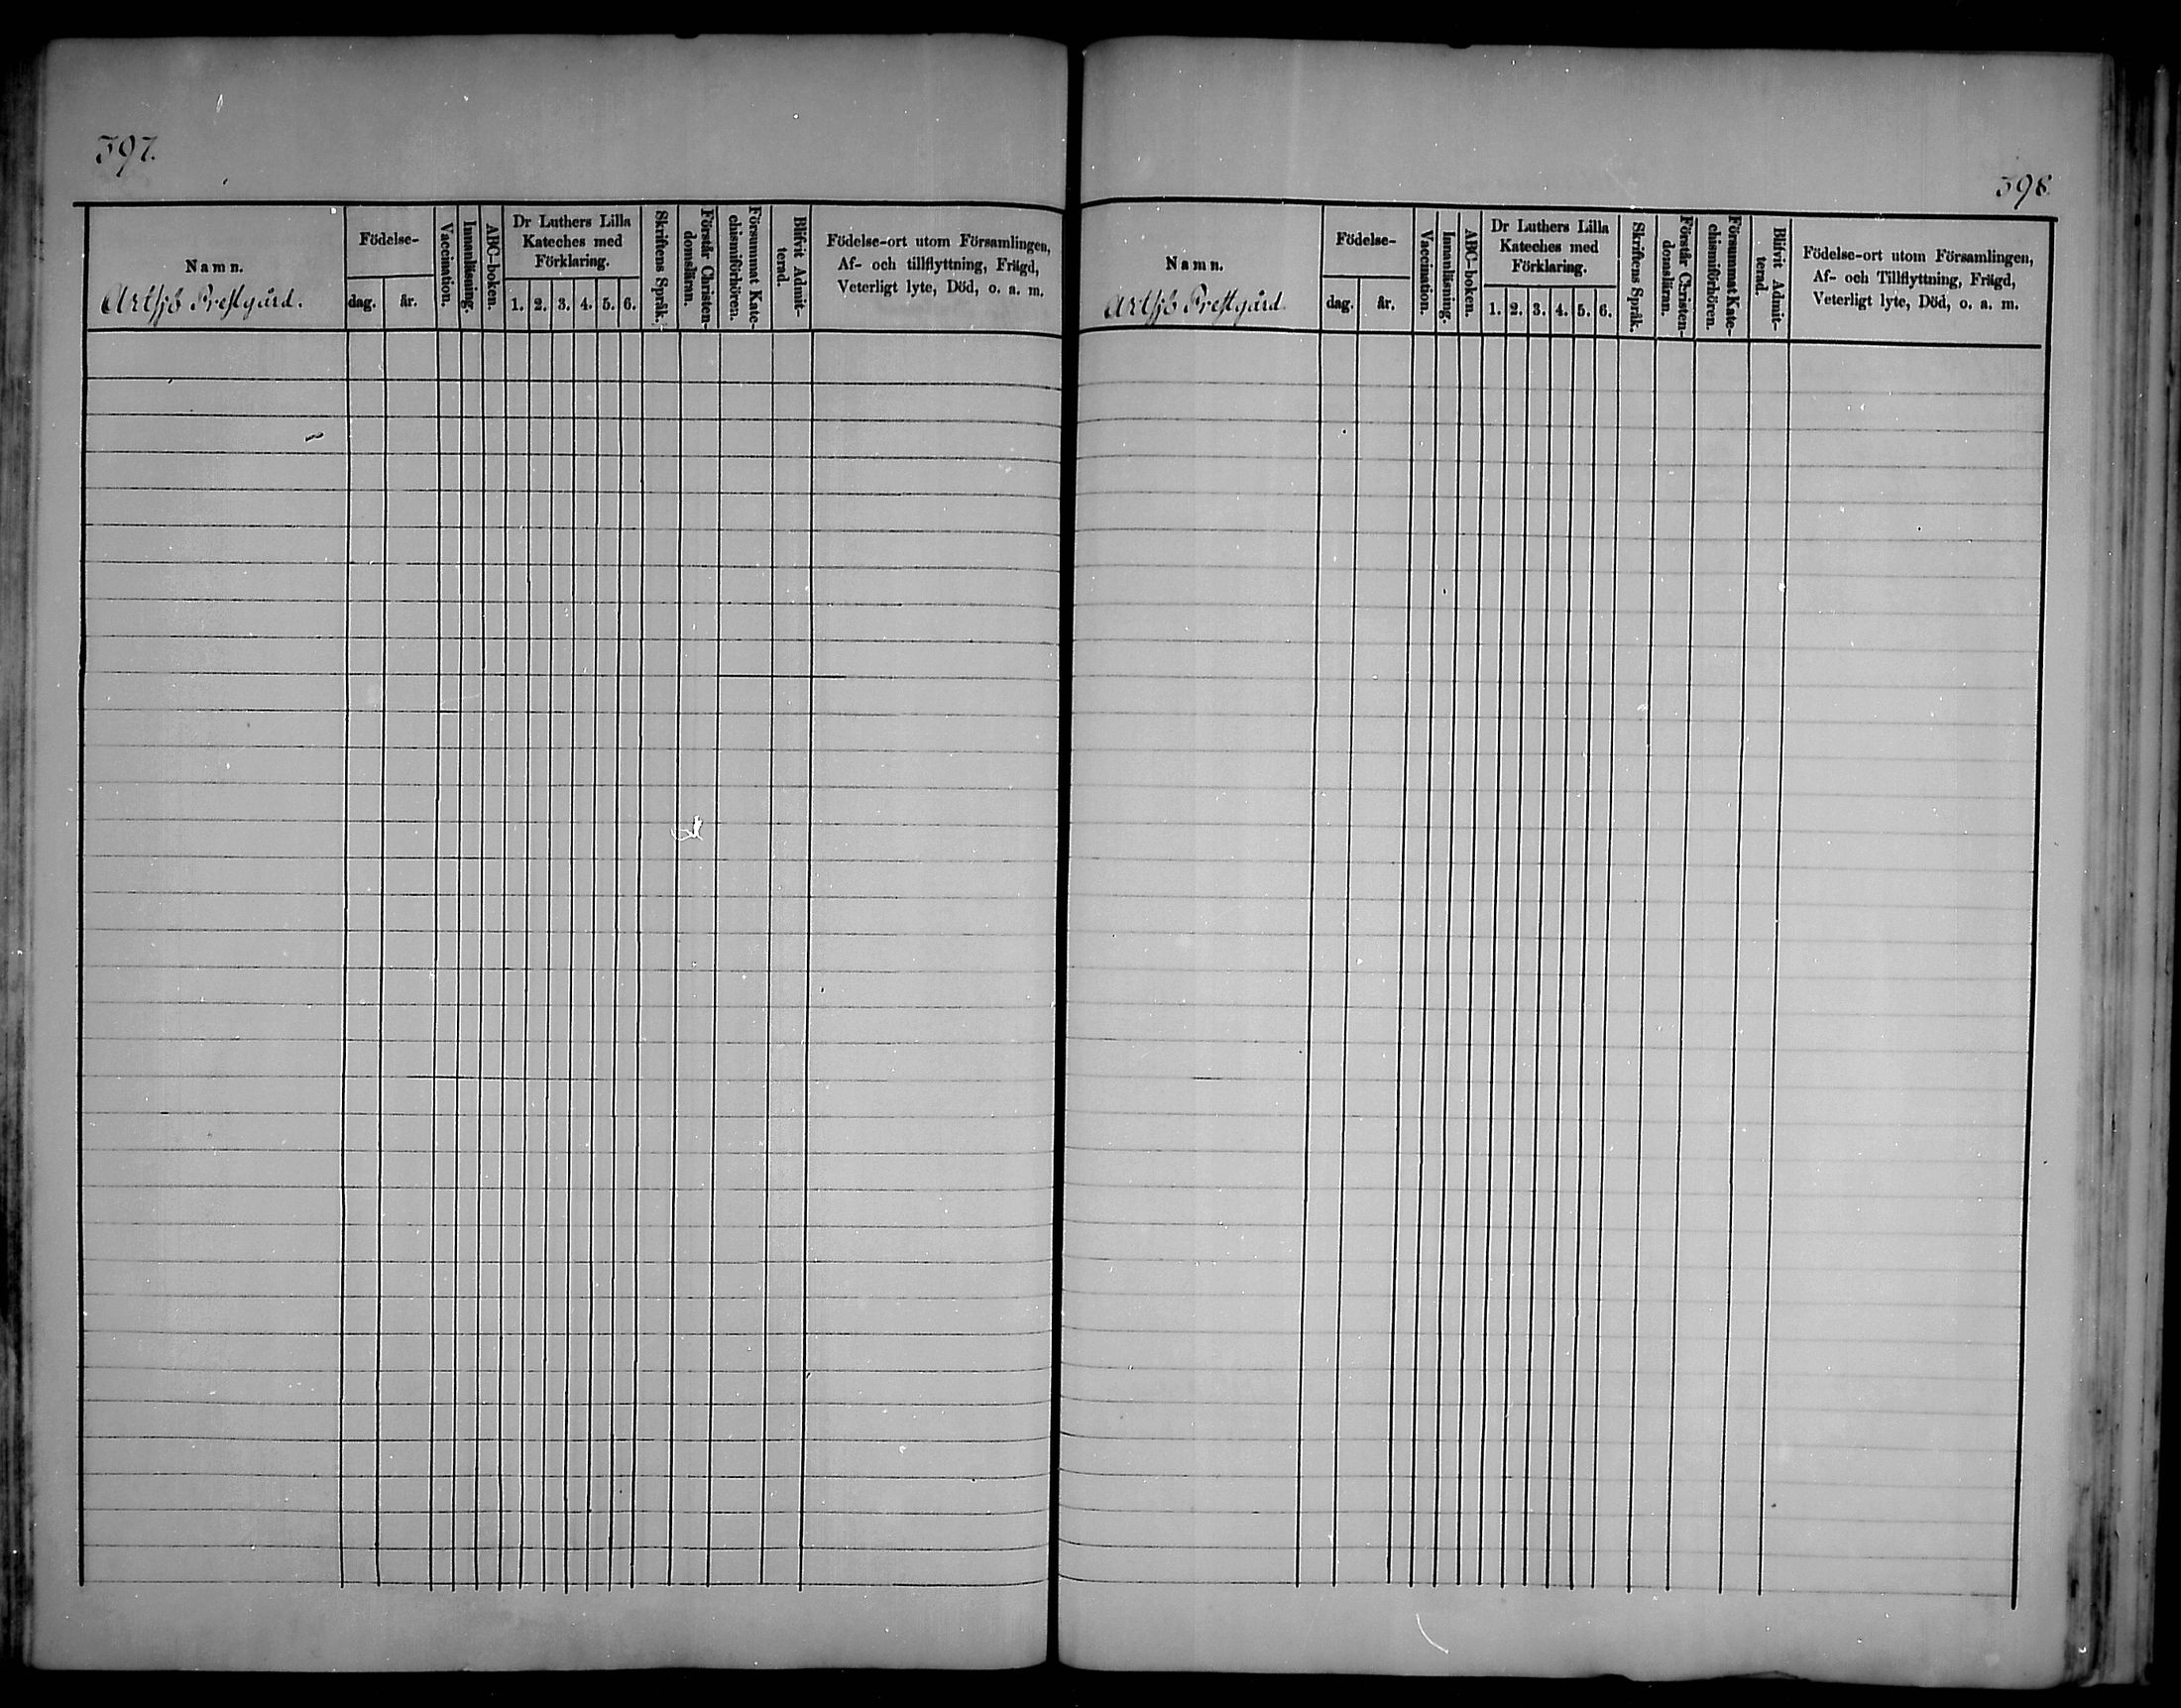 397.
Namn.
Artsjö Prestgård.
Födelse-
dag. år.
Vaccination.
Innanläsning.
ABC-boken.
Dr Luthers Lilla
Kateches med
Förklaring.
1. 2. 3. 4. 5. 6.
Skriftens Språk.
Förstår Christen-
domsläran.
Försummat Kate-
chismiförhören.
Blifvit Admit-
terad.
Födelse-ort utom Församlingen,
Af- och tillflyttning, Frägd,
Veterligt lyte, Död, o. a. m.
398
Namn.
Artsjö Prestgård.
Födelse-
dag. år.
Vaccination.
Innanläsning.
ABC-boken.
Dr Luthers Lilla
Kateches med
Förklaring.
1. 2. 3. 4. 5. 6.
Skriftens Språk.
Förstår Christen-
domsläran.
Försummat Kate-
chismiförhören.
Blifvit Admit-
terad.
Födelse-ort utom Församlingen,
Af- och Tillflyttning, Frägd,
Veterligt lyte, Död, o. a. m.